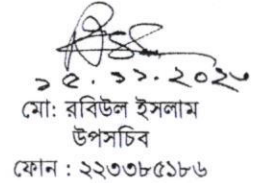 ১৫.১১.২০২৩
মো: রবিউল ইসলাম
উপসচিব
ফোন : ২২৩৩৮৫১৮৬